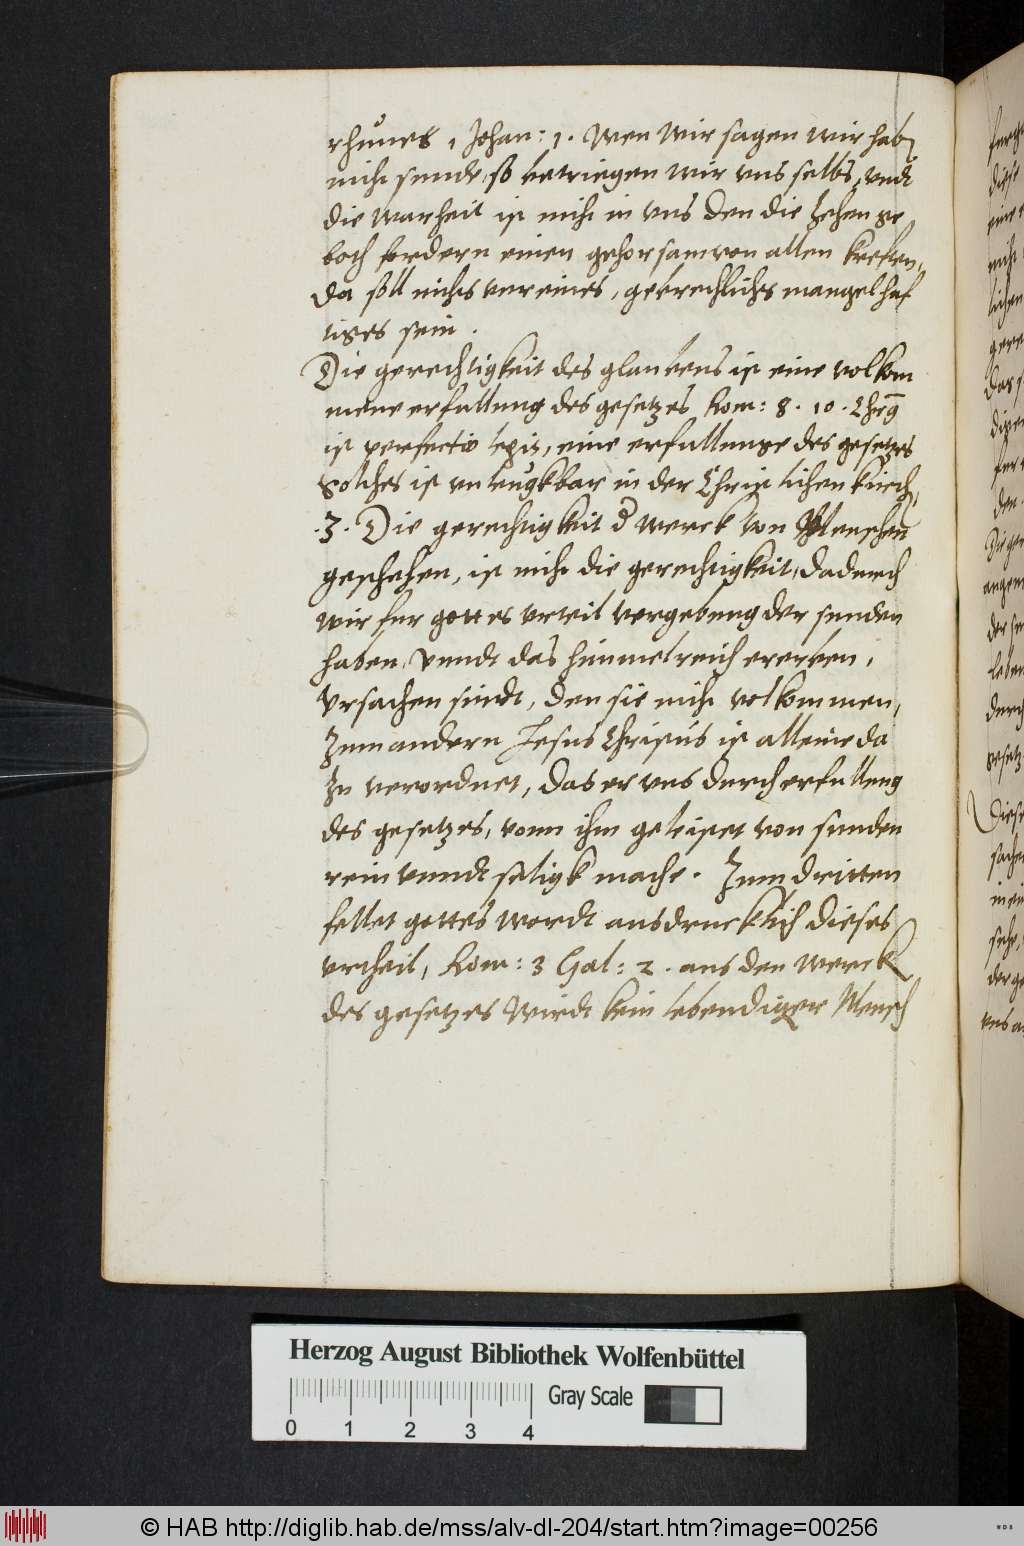 rhumes 1 Johan: 1. Wen wir sagen wir hab
nicht sunde, so betriegen wir vns selbs, vndt
die warheit ist nicht in vns den die zehen ge
both fordern einen gehorsam von allen krefften,
da soll nichts vnreines, gebrechlichs mangelhaf
tiges sein.
Die gerechtigkeit des glaubens ist eine volkom
mene erfullung des gesetzes Rom: 8. 10. Christ9
ist perfectio legis, eine erfullunge des gesetzes
Solches ist vnleugkbar in der Christlichen kirch,
.3. Die gerechtigkeit d werck von Menschen
geschehen, ist nicht die gerechtigkeit, dadurch
wir fur gottes vrteil vergebung der sunden
haben, vnndt das himmelreich ererben,
Vrsachen sindt, den sie nicht volkommen,
Zum andern Jesus Christus ist alleine da
zu verordnet, das er vns durch erfullung
des gesetzes, vonn ihm geleistet von sunden
rein vnndt seligk mache. Zum dritten
fellet gottes wordt ausdrucklich dieses
vrtheil, Rom: 3 Gal: 2. aus den werck
des gesetzes wirdt kein lebendiger Mensch
Herzog August Bibliothek Wolfenbüttel
Gray Scale
0 1 2 3 4
© HAB http://diglib.hab.de/mss/alv-dl-204/start.htm?image=00256